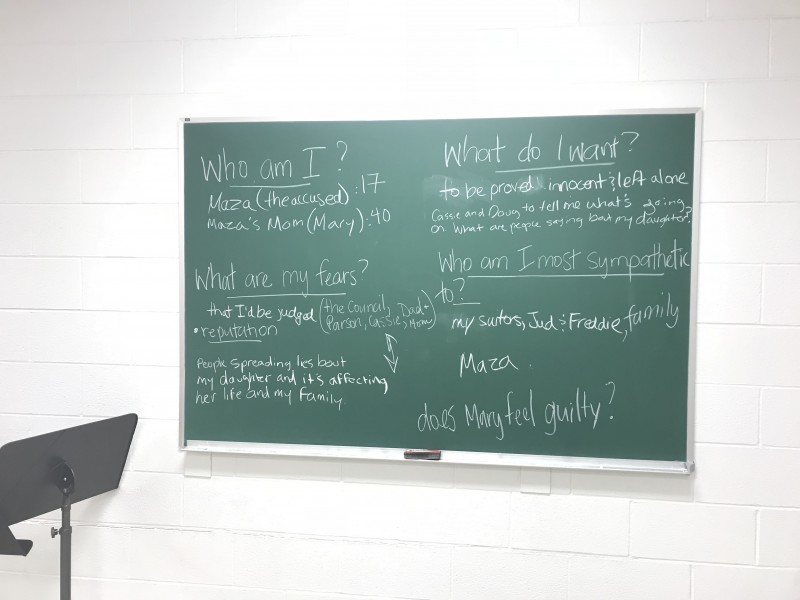 Who am I?
Maza (the accused) : 17
Maza's Mom (Mary) : 40
What are my fears?
that I'd be judged (the Council, Dad +
Parson, Cassie, Mom)
• reputation
People spreading lies bout
my daughter and it's affecting
her life and my family.
What do I want?
to be proved innocent & left alone
Cassie and Doug to tell me what's going
on. What are people saying bout my daughter?
Who am I most sympathetic
to?
my suitors, Jud & Freddie, family
Maza.
does Mary feel guilty?